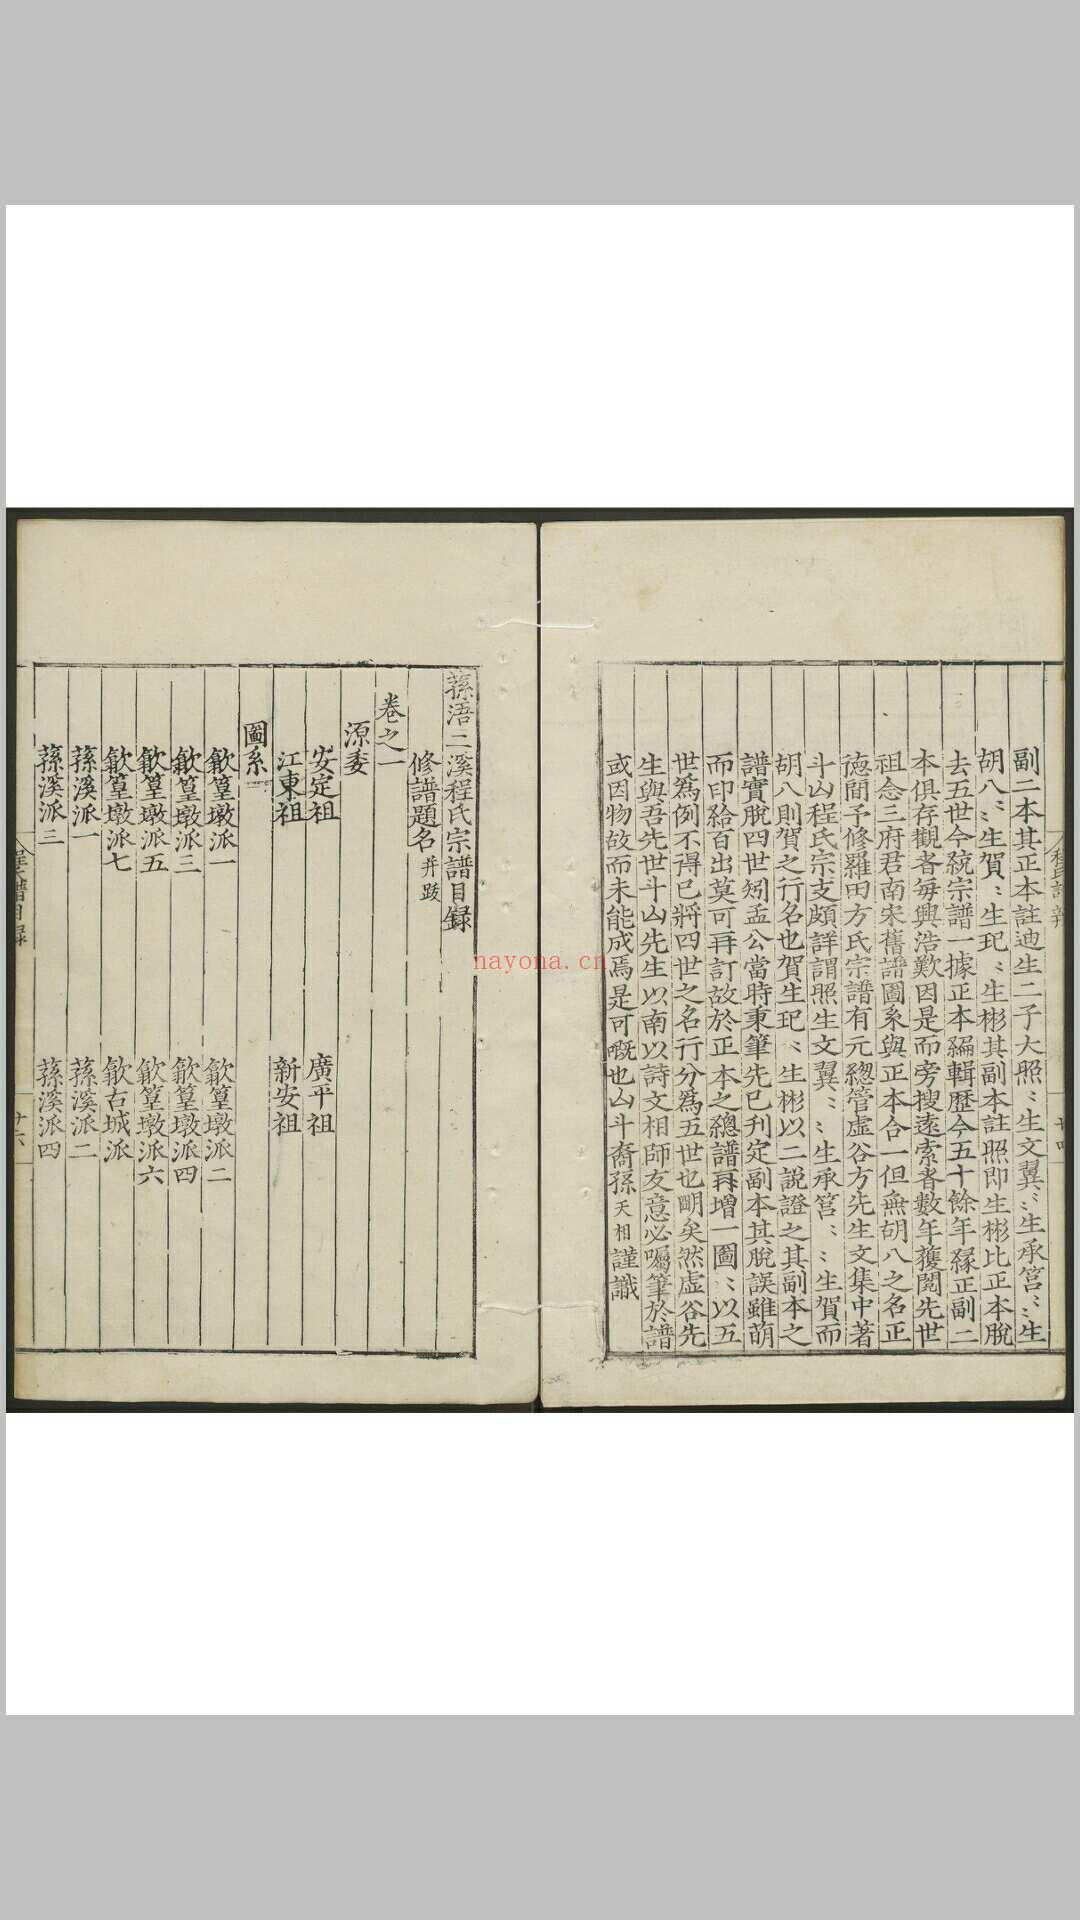 副二本其正本註迪生二子大照〻生文翼〻生承筥〻〻生
胡八〻生賀〻生玘〻生彬其副本註照即生彬比正本脫
去五世今統宗譜一據正本編輯歷今五十餘年緣正副二
本俱存觀者每興浩歎因是而旁搜遠索者數年獲閱先世
祖念三府君南宋舊譜圖系與正本合一但無胡八之名正
德間予修羅田方氏宗譜有元總管虛谷方先生文集中著
斗山程氏宗支頗詳謂照生文翼〻〻生承筥〻〻生賀而
胡八則賀之行名也賀生玘〻生彬以二說證之其副本之
譜實脫四世矧孟公當時秉筆先已刊定副本其脫誤雖萌
而印給百出莫可再訂故於正本之總譜再增一圖〻以五
世爲例不得已將四世之名行分爲五世也明矣然虛谷先
生與吾先世斗山先生以南以詩文相師友意必囑筆於譜
或因物故而未能成焉是可嘅也山斗裔孫天相謹識
蓀浯二溪程氏宗譜目録
修譜題名并跋
卷之一
源委
安定祖 廣平祖
江東祖 新安祖
圖系
歙篁墩派一 歙篁墩派二
歙篁墩派三 歙篁墩派四
歙篁墩派五 歙篁墩派六
歙篁墩派七 歙古城派
蓀溪派一 蓀溪派二
蓀溪派三 蓀溪派四
程氏譜目録
廿六
nayona.cn